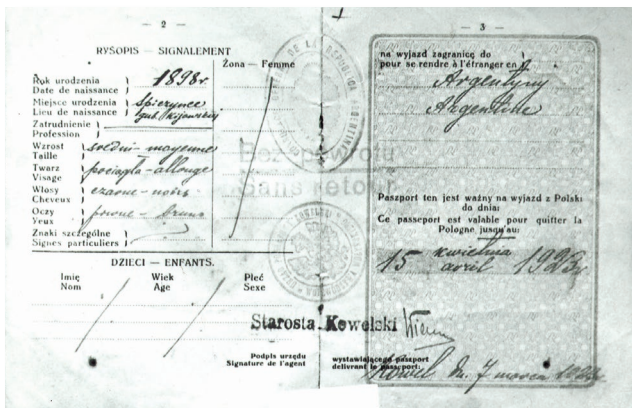 — 2 —
RYSOPIS — SIGNALEMENT
Żona — Femme
Rok urodzenia
Date de naissance
1898 r
Miejsce urodzenia
Lieu de naissance
gub. kijowskiej
Zatrudnienie
Profession
Wzrost
Taille
średni - moyenne
Twarz
Visage
pociągła - allongé
Włosy
Cheveux
czarne - noirs
Oczy
Yeux
piwne - bruns
Znaki szczególne
Signes particuliers
DZIECI — ENFANTS.
Imię
Nom
Wiek
Age
Płeć
Sexe
Bez powrotu
Sans retour
Starosta Kowelski
Podpis urzędu
Signature de l'agent
— 3 —
na wyjazd zagranicę do
pour se rendre à l'étranger en
Argentyny
Argentine
Paszport ten jest ważny na wyjazd z Polski
do dnia:
Ce passeport est valable pour quitter la
Pologne jusqu'au:
15 kwietnia
avril 1923 r
wystawiającego paszport
délivrant le passeport:
Kowel dn. 7 marca